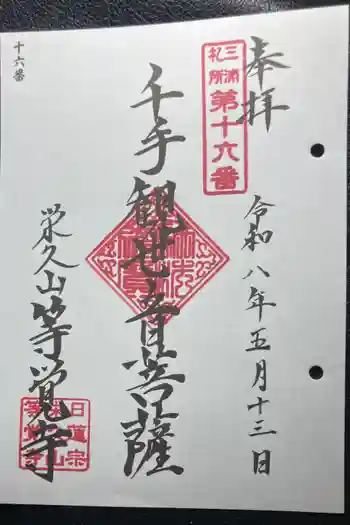 奉拝
三浦
札所
第十六番
令和八年五月十三日
千手観世音菩薩
栄久山等覚寺
日蓮宗
十六番